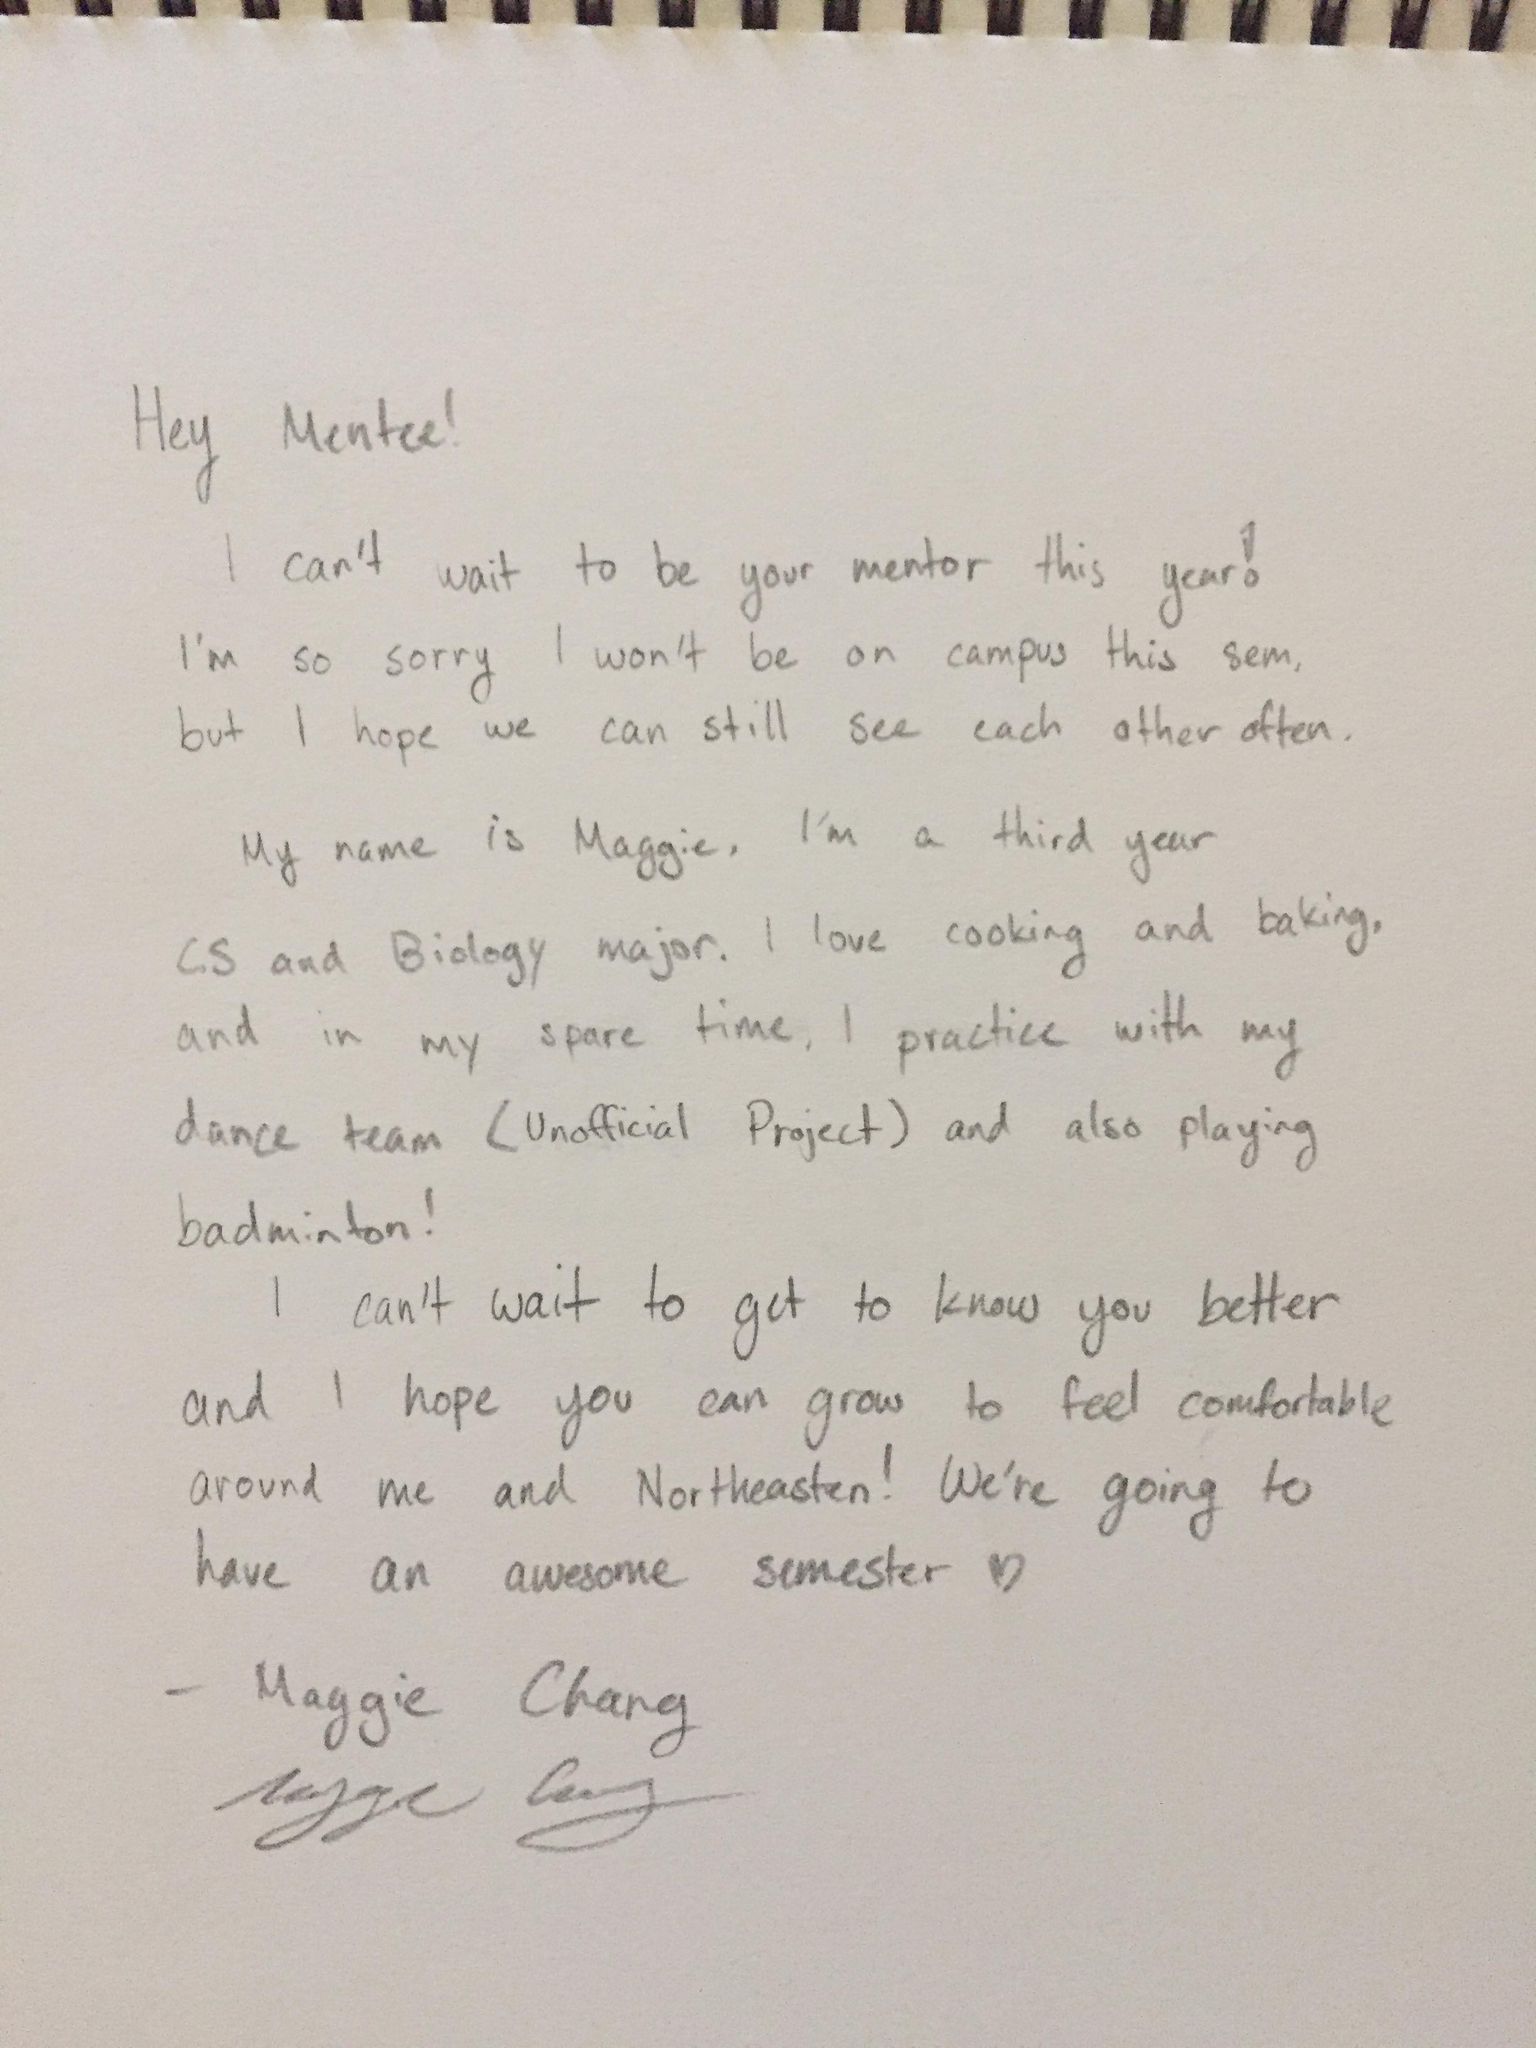 Hey Mentee!
I can't wait to be your mentor this year!
I'm so sorry I won't be on campus this sem,
but I hope we can still see each other often.
My name is Maggie. I'm a third year
CS and Biology major. I love cooking and baking,
and in my spare time, I practice with my
dance team (Unofficial Project) and also playing
badminton!
I can't wait to get to know you better
and I hope you can grow to feel comfortable
around me and Northeasten! We're going to
have an awesome semester ♡
- Maggie Chang
Maggie Chang